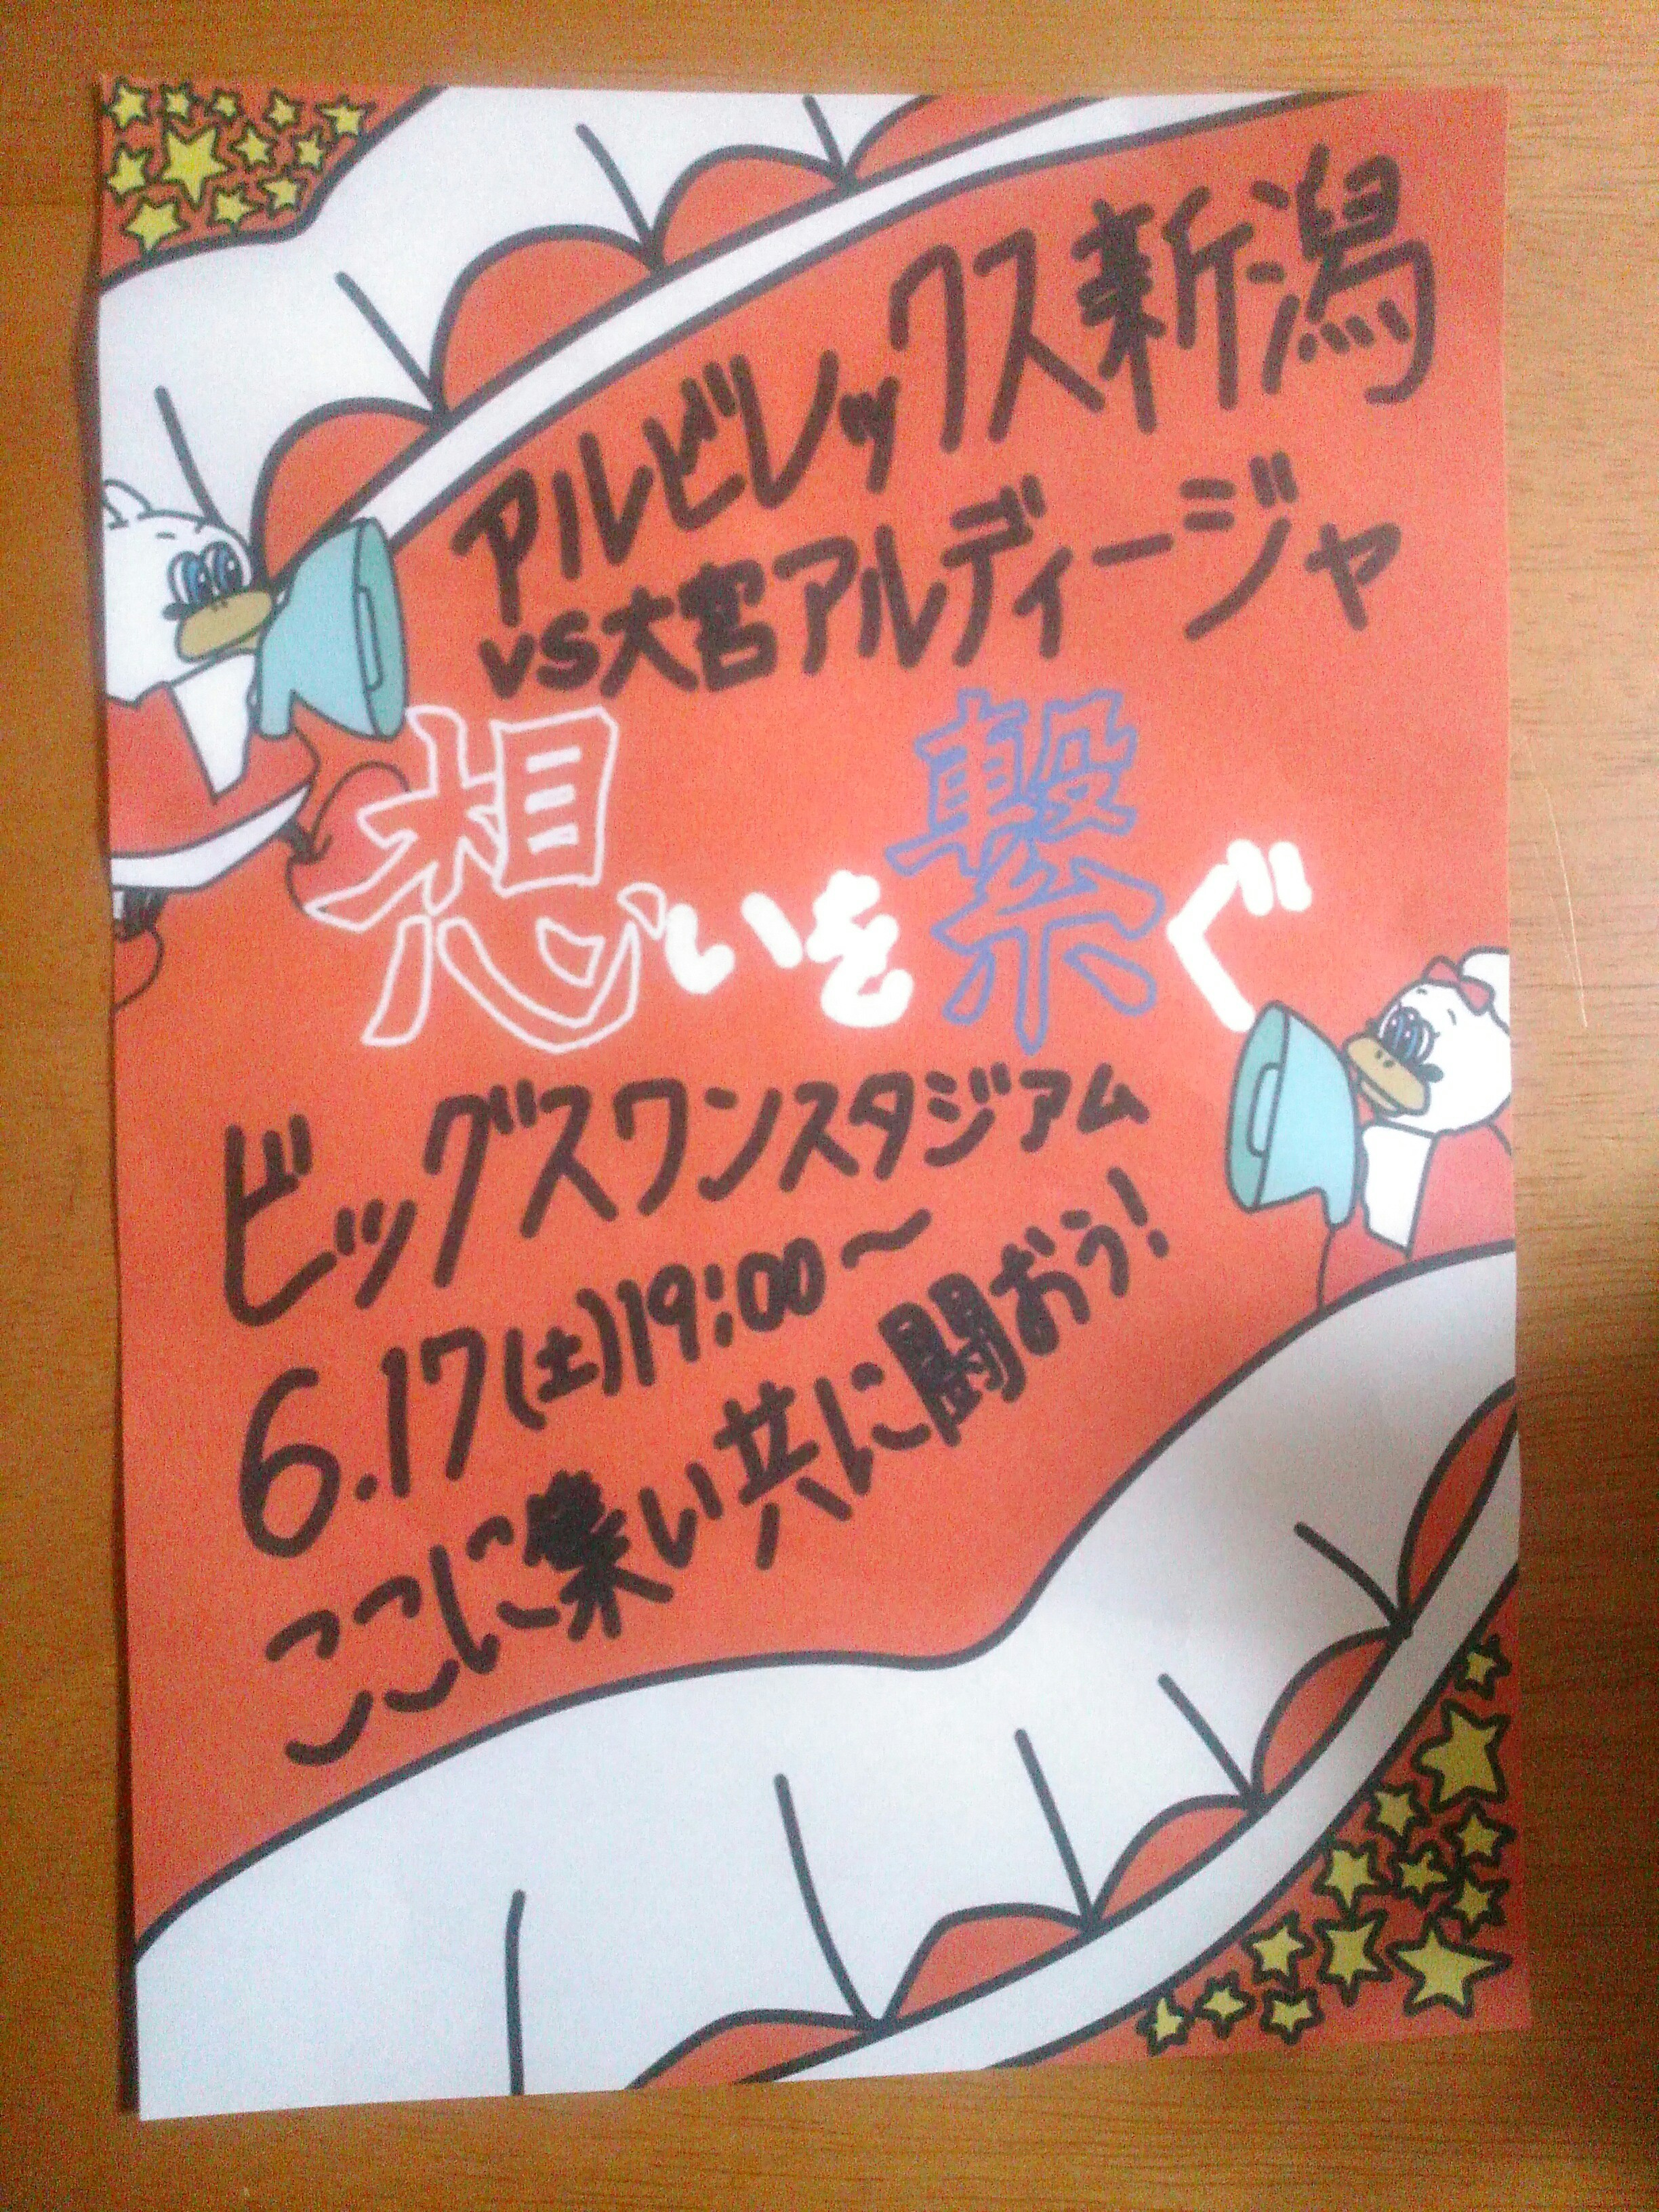 アルビレックス新潟
VS大宮アルディージャ
想いを繋ぐ
ビッグスワンスタジアム
6.17(土)19:00～
ここに集い共に闘おう!